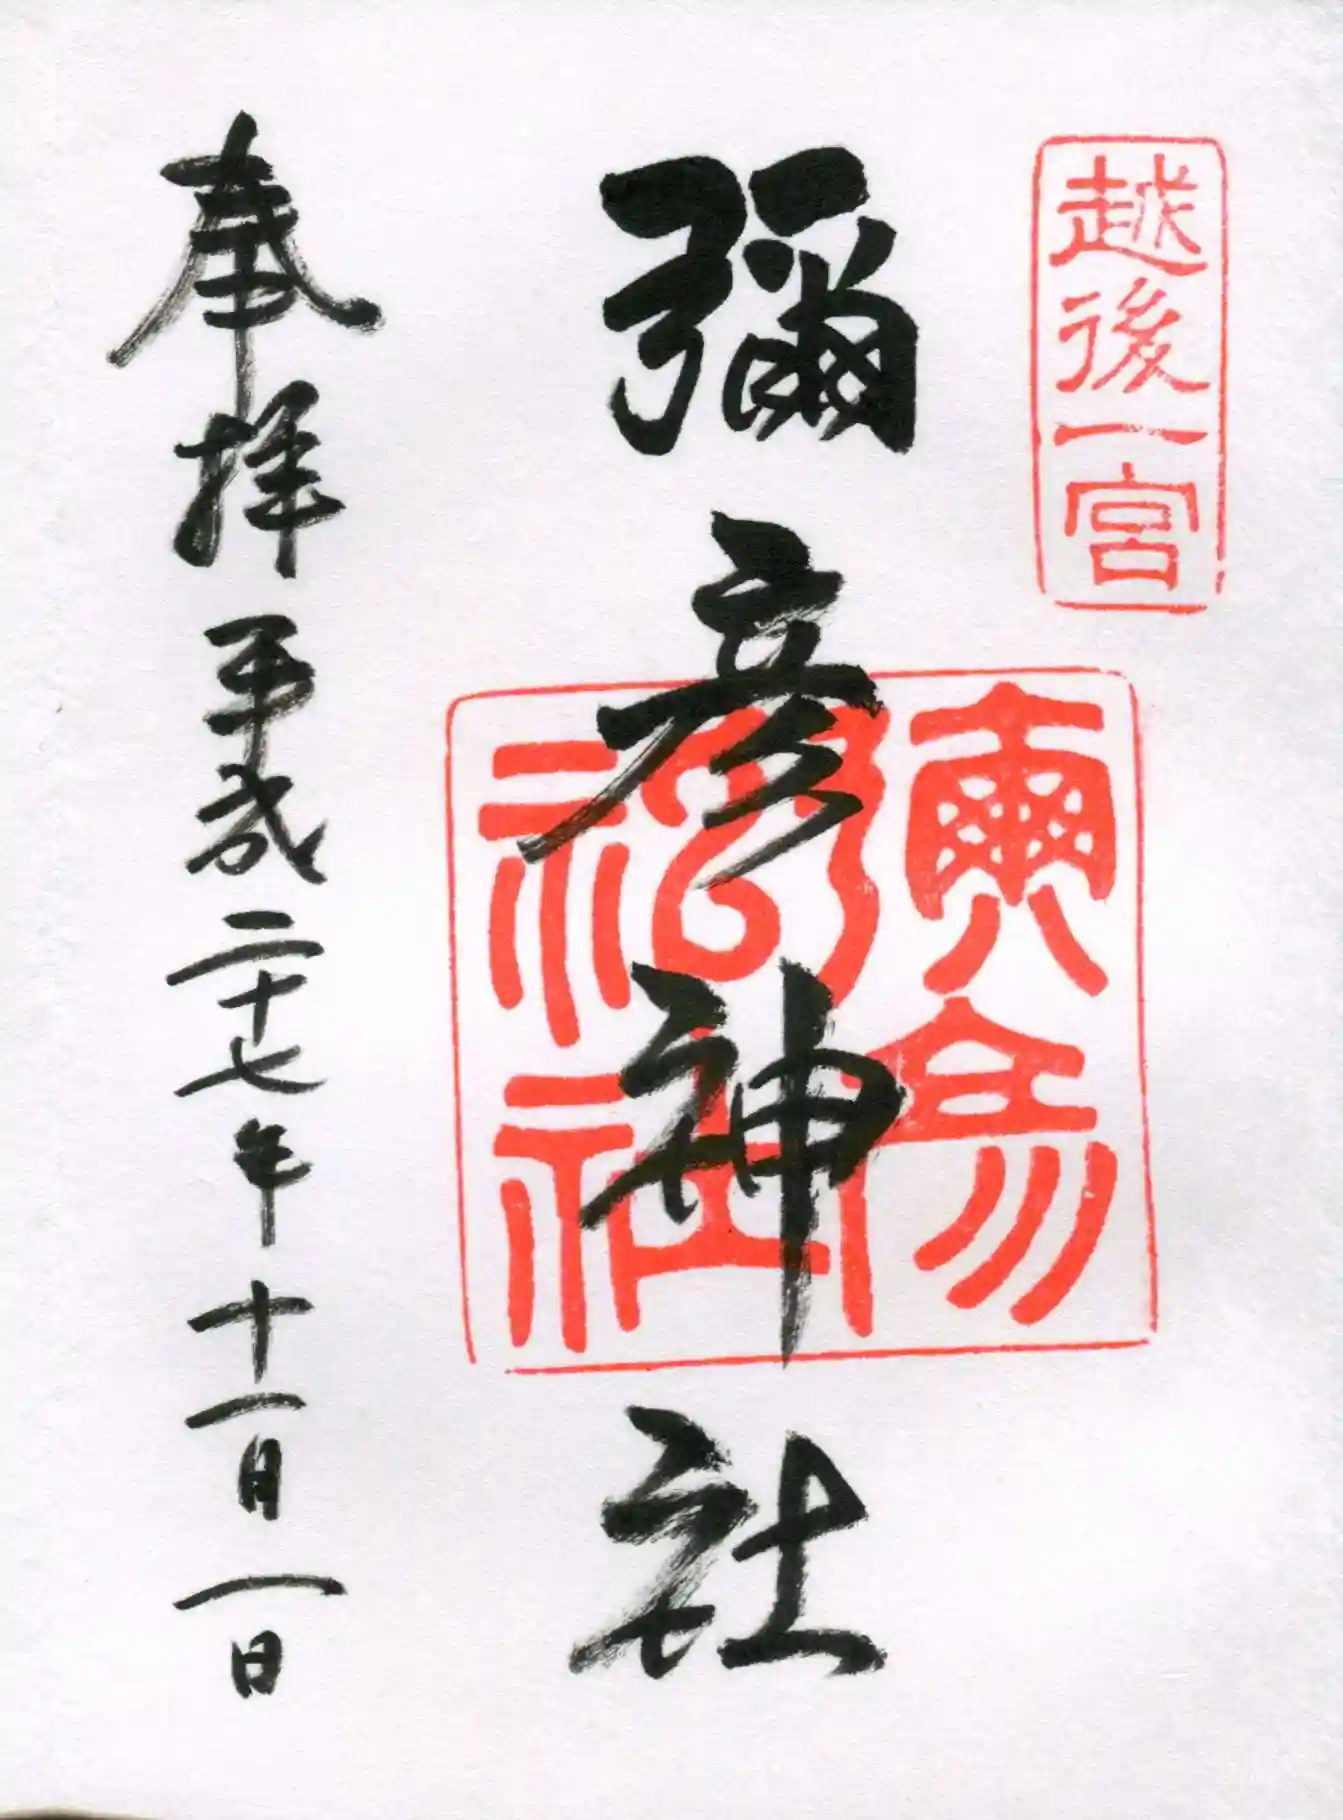 越後一宮
彌彦神社
彌彦神社
奉拝 平成二十七年十一月一日